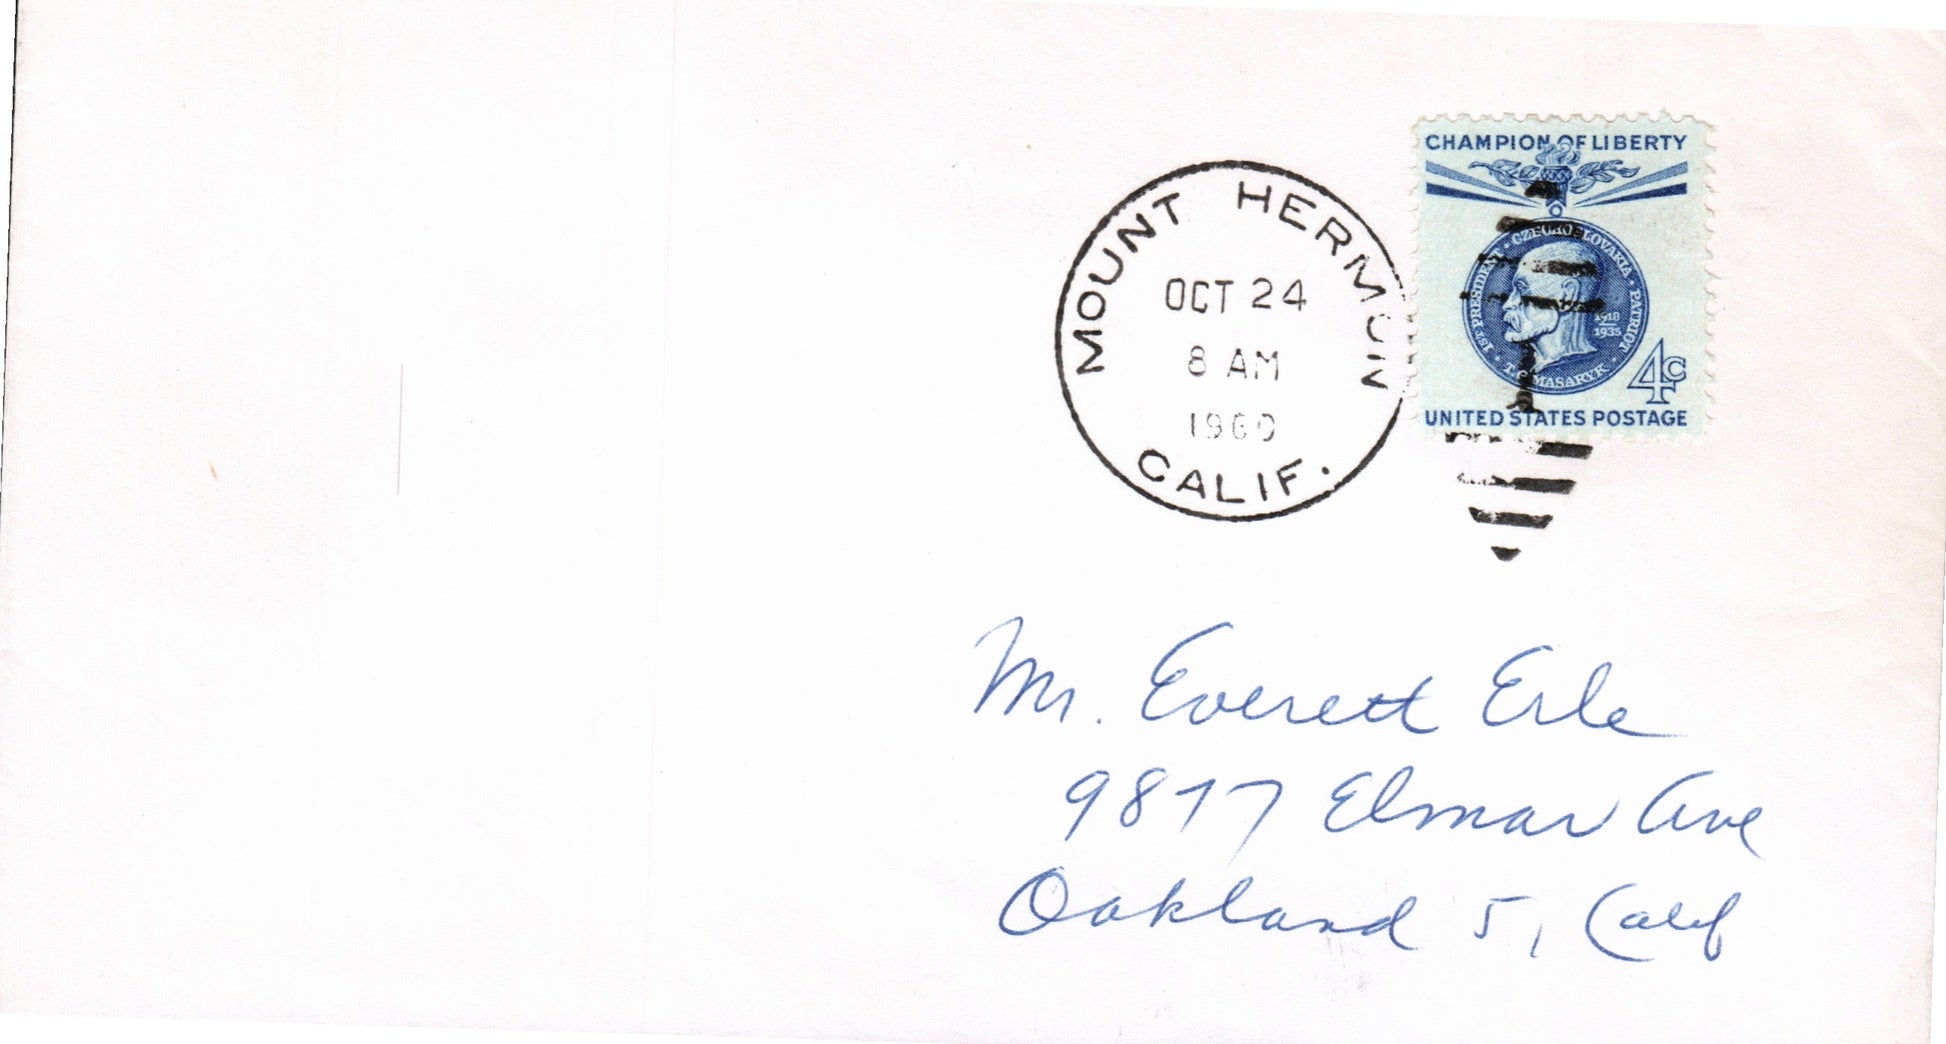 CHAMPION OF LIBERTY
1ST PRESIDENT • CZECHOSLOVAKIA • PATRIOT •
1918
1935
T. G. MASARYK
4c
UNITED STATES POSTAGE
MOUNT HERMON
OCT 24
8 AM
1960
CALIF.
Mr. Everett Erle
9877 Elmar Ave
Oakland 5, Calif